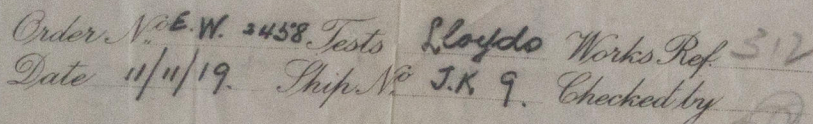 Order No. E.W. 2458 Tests Lloyds Works Ref. 312
Date 11/11/19. Ship No. J.K 9. Checked by